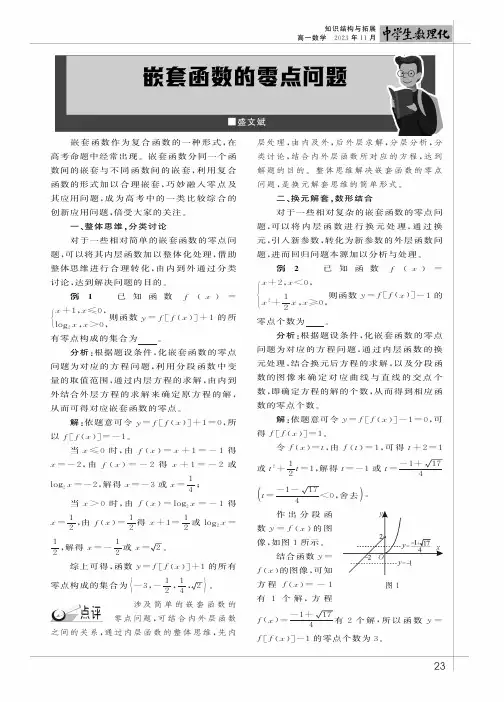 知识结构与拓展
高一数学 2023年11月
中学生数理化
嵌套函数的零点问题
■盛文斌
嵌套函数作为复合函数的一种形式,在
高考命题中经常出现。嵌套函数分同一个函
数间的嵌套与不同函数间的嵌套,利用复合
函数的形式加以合理嵌套,巧妙融入零点及
其应用问题,成为高中的一类比较综合的
创新应用问题,倍受大家的关注。
一、整体思维,分类讨论
对于一些相对简单的嵌套函数的零点问
题,可以将其内层函数加以整体化处理,借助
整体思维进行合理转化,由内到外通过分类
讨论,达到解决问题的目的。
例 1 已知函数 f(x)=
{x+1,x≤0,
log₂x,x>0, 则函数 y=f[f(x)]+1 的所
有零点构成的集合为 ____。
分析:根据题设条件,化嵌套函数的零点
问题为对应的方程问题,利用分段函数中变
量的取值范围,通过内层方程的求解,由内到
外结合外层方程的求解来确定原方程的解,
从而可得对应嵌套函数的零点。
解:依题意可令 y=f[f(x)]+1=0,所
以 f[f(x)]=-1。
当 x≤0 时,由 f(x)=x+1=-1 得
x=-2,由 f(x)=-2 得 x+1=-2 或
log₂x=-2,解得 x=-3 或 x=1/4;
当 x>0 时,由 f(x)=log₂x=-1 得
x=1/2,由 f(x)=1/2 得 x+1=1/2 或 log₂x=
1/2,解得 x=-1/2 或 x=√2。
综上可得,函数 y=f[f(x)]+1 的所有
零点构成的集合为{-3,-1/2,1/4,√2}。
点评
涉及简单的嵌套函数的
零点问题,可结合内外层函数
之间的关系,通过内层函数的整体思维,先内
层处理,由内及外,后外层求解,分层分析,分
类讨论,结合内外层函数所对应的方程,达到
解题的目的。整体思维解决嵌套函数的零点
问题,是换元解套思维的简单形式。
二、换元解套,数形结合
对于一些相对复杂的嵌套函数的零点问
题,可以将内层函数进行换元处理,通过换
元,引入新参数,转化为新参数的外层函数问
题,进而回归问题本源加以分析与处理。
例 2 已知函数 f(x)=
{x+2,x<0,
x²+1/2x,x≥0, 则函数 y=f[f(x)]-1 的
零点个数为 ____。
分析:根据题设条件,化嵌套函数的零点
问题为对应的方程问题,通过内层函数的换
元处理,结合换元后方程的求解,以及分段函
数的图像来确定对应曲线与直线的交点个
数,即确定方程的解的个数,从而得到相应函
数的零点个数。
解:依题意可令 y=f[f(x)]-1=0,可
得 f[f(x)]=1。
令 f(x)=t,由 f(t)=1,可得 t+2=1
或 t²+1/2t=1,解得 t=-1 或 t=(-1+√17)/4
(t=(-1-√17)/4<0,舍去)。
作出分段函
数 y=f(x)的图
像,如图 1 所示。
结合函数 y=
f(x)的图像,可知
方程 f(x)=-1
有 1 个解,方程
y
2
y=(-1+√17)/4
-2 O x
y=-1
图 1
f(x)=(-1+√17)/4 有 2 个解,所以函数 y=
f[f(x)]-1 的零点个数为 3。
23